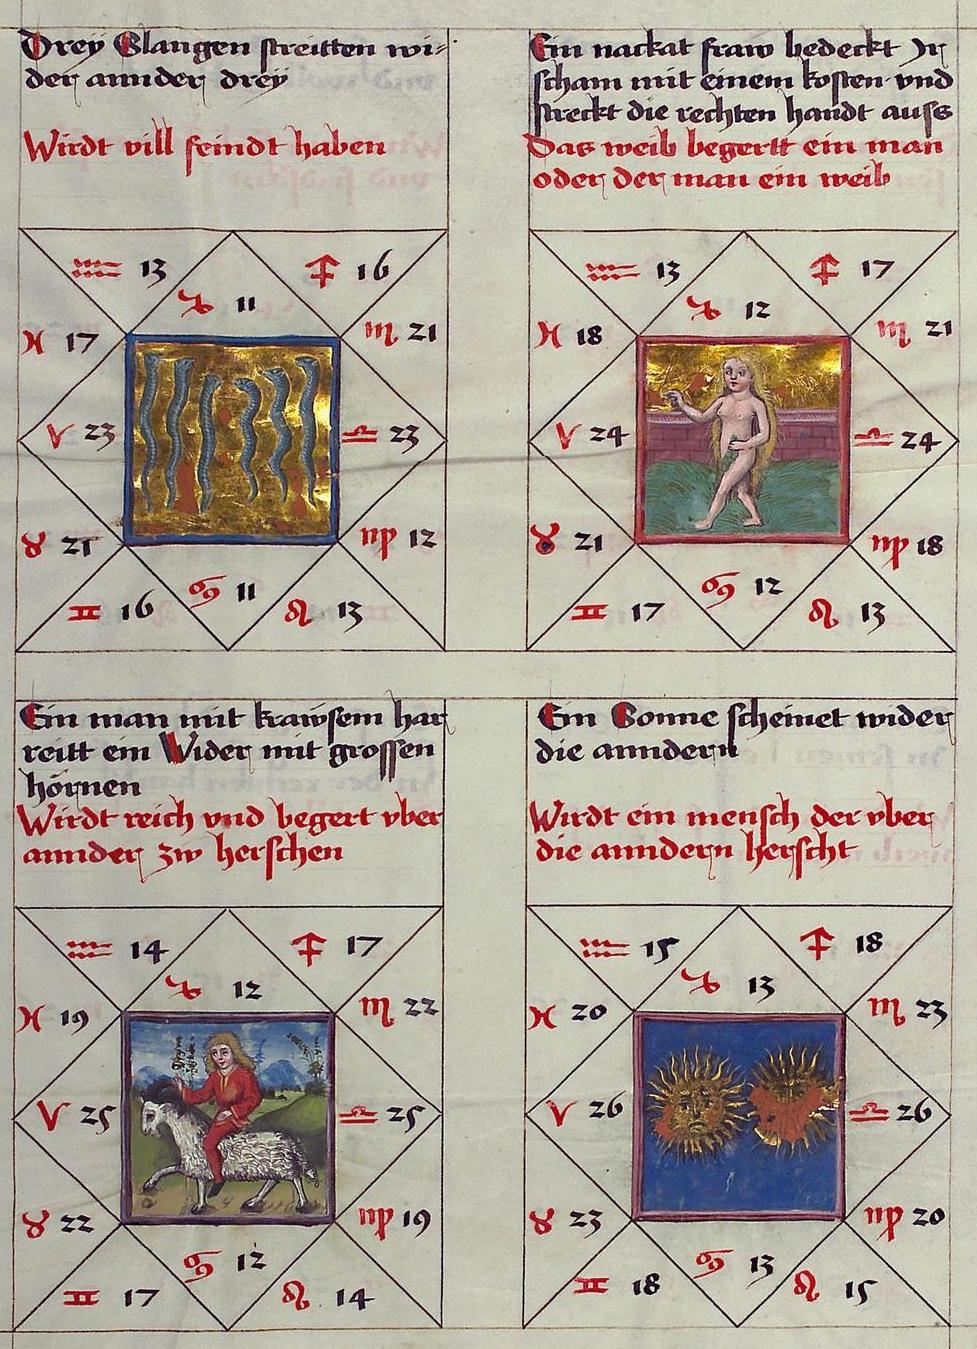 Drey Slangen streitten wi-
der annder drey
Wirdt vill feindt haben
♒ 13
♐ 16
♑ 11
♓ 17
♏ 21
♈ 23
♎ 23
♉ 21
♍ 12
♋ 11
♊ 16
♌ 13
Ein nackat fraw bedeckt Jr
scham mit einem kosten vnd
streckt die rechten handt auss
Das weib begertt ein man
oder der man ein weib
♒ 13
♐ 17
♑ 12
♓ 18
♏ 21
♈ 24
♎ 24
♉ 21
♍ 18
♋ 12
♊ 17
♌ 13
Ein man mit krawsem har
reitt ein Wider mit grossen
hörnen
Wirdt reich vnd begert vber
annder zw herschen
♒ 14
♐ 17
♑ 12
♓ 19
♏ 22
♈ 25
♎ 25
♉ 22
♍ 19
♋ 12
♊ 17
♌ 14
Ein Sonne scheinet wider
die anndern
Wirdt ein mensch der vber
die anndern herscht
♒ 15
♐ 18
♑ 13
♓ 20
♏ 23
♈ 26
♎ 26
♉ 23
♍ 20
♋ 13
♊ 18
♌ 15